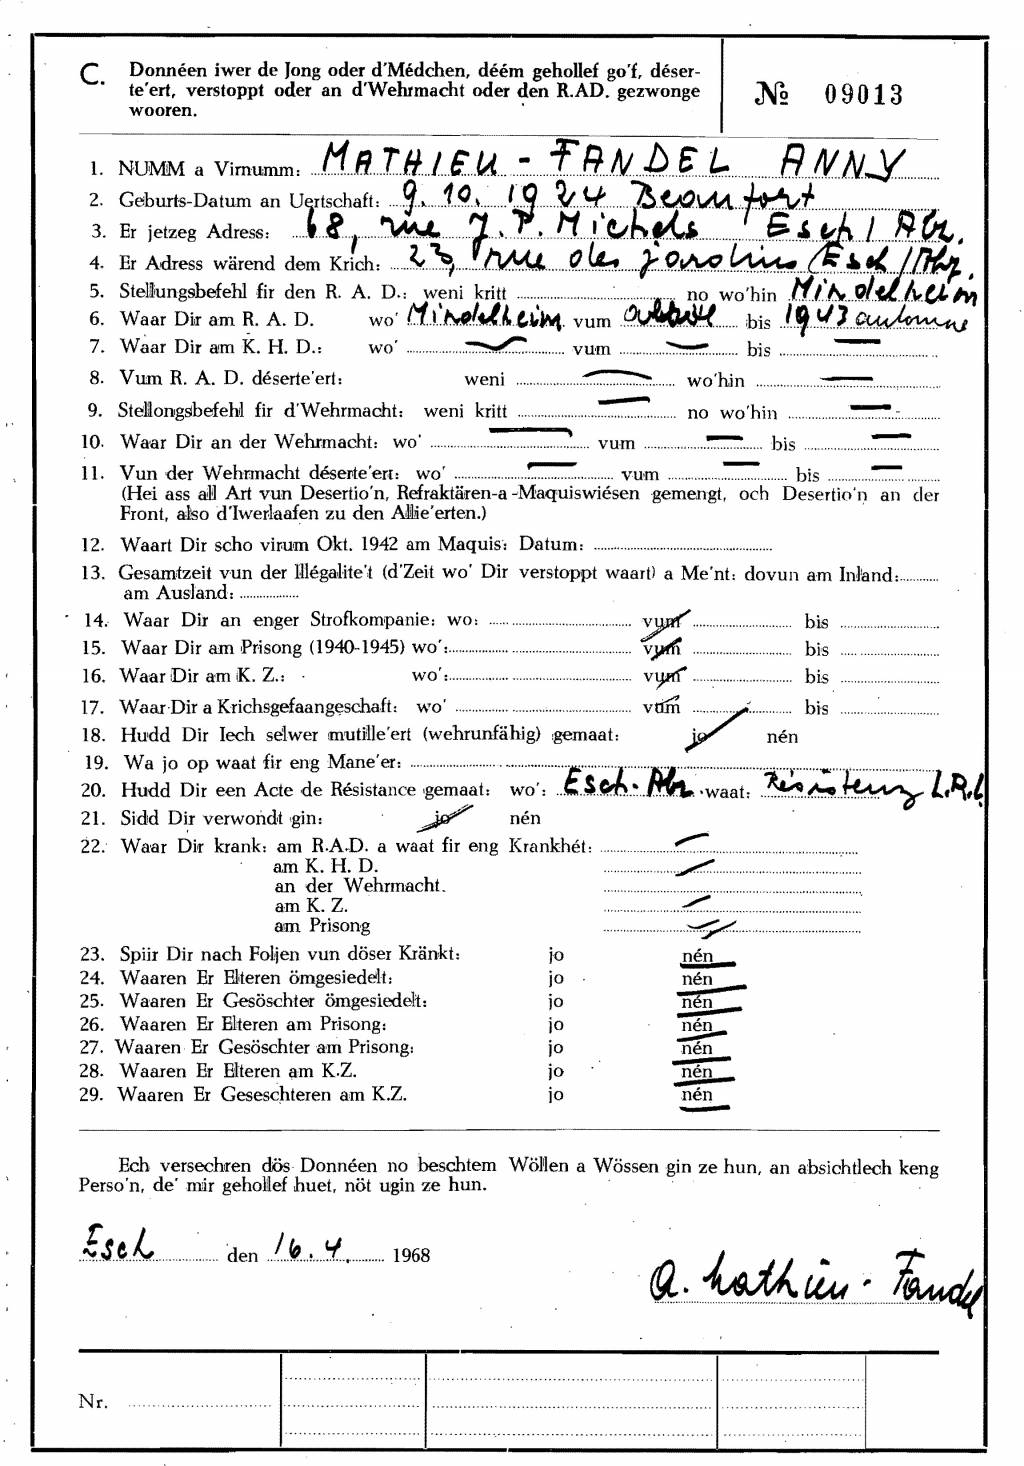 C. Donnéen iwer de Jong oder d'Médchen, déém gehollef go'f, déser-
te'ert, verstoppt oder an d'Wehrmacht oder den R.AD. gezwonge
wooren.
№ 09013
1. NUMM a Virnumm: MATHIEU - FANDEL ANNY
2. Geburts-Datum an Uertschaft: 9. 10. 1924 Beaufort
3. Er jetzeg Adress: 68, rue J. P. Michels Esch / Alz.
4. Er Adress wärend dem Krich: 23, rue des jardins (Esch / Alz.
5. Stellungsbefehl fir den R. A. D.: weni kritt no wo'hin Mindelheim
6. Waar Dir am R. A. D. wo' Mindelheim vum bis 1943 automne
7. Waar Dir am K. H. D.: wo' vum bis
8. Vum R. A. D. déserte'ert: weni wo'hin
9. Stellongsbefehl fir d'Wehrmacht: weni kritt no wo'hin
10. Waar Dir an der Wehrmacht: wo' vum bis
11. Vun der Wehrmacht déserte'ert: wo' vum bis
(Hei ass all Art vun Desertio'n, Refraktären-a-Maquiswiésen gemengt, och Desertio'n an der
Front, also d'Iwerlaafen zu den Allie'erten.)
12. Waart Dir scho virum Okt. 1942 am Maquis: Datum:
13. Gesamtzeit vun der Illégalite't (d'Zeit wo' Dir verstoppt waart) a Me'nt: dovun am Inland:
am Ausland:
14. Waar Dir an enger Strofkompanie: wo: vum bis
15. Waar Dir am Prisong (1940-1945) wo': vum bis
16. Waar Dir am K. Z.: wo': vum bis
17. Waar Dir a Krichsgefaangeschaft: wo' vum bis
18. Hudd Dir Iech selwer mutille'ert (wehrunfähig) gemaat: jo nén
19. Wa jo op waat fir eng Mane'er:
20. Hudd Dir een Acte de Résistance gemaat: wo': Esch-Alz waat: Résistenz L.R.L
21. Sidd Dir verwondt gin: jo nén
22. Waar Dir krank: am R.A.D. a waat fir eng Krankhét:
am K. H. D.
an der Wehrmacht.
am K. Z.
am Prisong
23. Spiir Dir nach Foljen vun döser Kränkt: jo nén
24. Waaren Er Elteren ömgesiedelt: jo nén
25. Waaren Er Gesöschter ömgesiedelt: jo nén
26. Waaren Er Elteren am Prisong: jo nén
27. Waaren Er Gesöschter am Prisong: jo nén
28. Waaren Er Elteren am K.Z. jo nén
29. Waaren Er Geseschteren am K.Z. jo nén
Ech versechren dös Donnéen no beschtem Wöllen a Wössen gin ze hun, an absichtlech keng
Perso'n, de' mir gehollef huet, nöt ugin ze hun.
Esch den 16. 4. 1968
A. Mathieu - Fandel
Nr.